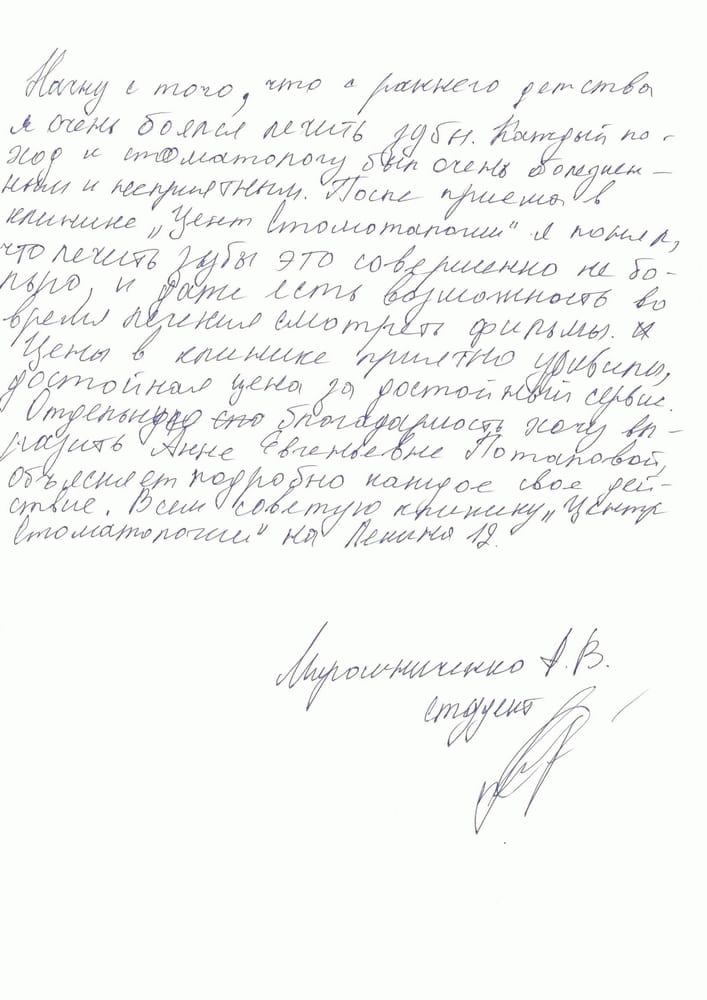 Начну с того, что с раннего детства
я очень боялся лечить зубы. Каждый по-
ход к стоматологу был очень болезнен-
ным и неприятным. После приема в
клинике „Цент Стомотологии" я понял,
что лечить зубы это совершенно не бо-
льно, и даже есть возможность во
время лечения смотреть фильмы.
Цены в клинике приятно удивили,
достойная цена за достойный сервис.
Отдельную благодарность хочу вы-
разить Анне Евгеньевне Потаповой,
объясняет подробно каждое свое дей-
ствие. Всем советую клинику „Центр
Стоматологии" на Ленина 12.
Мирошниченко А.В.
студент